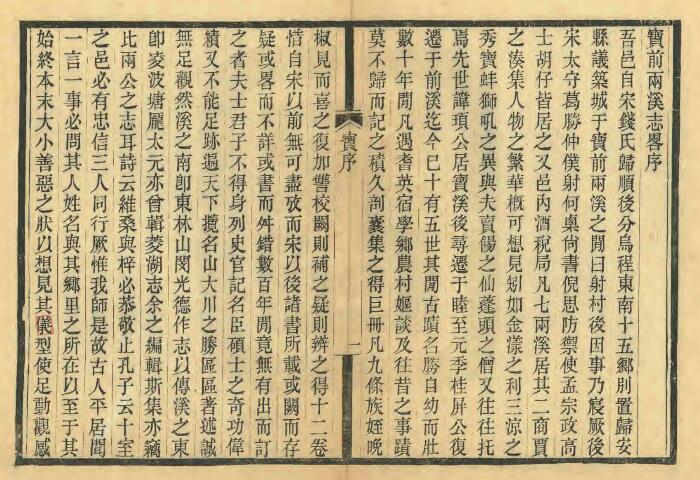 寶前兩溪志畧序
吾邑自宋錢氏歸順後分烏程東南十五鄉則置歸安
縣議築城于寶前兩溪之閒曰射村後因事乃寢厥後
宋太守葛勝仲僕射何㮚尙書倪思防禦使孟宗政高
士胡仔皆居之又邑內酒稅局凡七兩溪居其二商賈
之湊集人物之繁華槪可想見矧如金漾之利三涼之
秀寶蚌獅吼之異與夫賣餳之仙蓬頭之僧又往往托
焉先世諱頊公居寶溪後尋遷于睦至元季桂屏公復
遷于前溪迄今巳十有五世其閒古蹟名勝自幼而壯
數十年閒凡遇耆英宿學鄉農村嫗談及往昔之事蹟
莫不歸而記之積久剖囊集之得巨冊凡九條族姪晚
寶序
一
椒見而喜之復加讐校闕則補之疑則辨之得十二卷
惜自宋以前無可盡攷而宋以後諸書所載或闕而存
疑或畧而不詳或書而舛錯數百年閒竟無有出而訂
之者夫士君子不得身列史官記名臣碩士之奇功偉
績又不能足跡遍天下攬名山大川之勝區區著述誠
無足觀然溪之南卽東林山閔光德作志以傳溪之東
卽凌波塘龎太元亦曾輯菱湖志余之編輯斯集亦竊
比兩公之志耳詩云維桑與梓必恭敬止孔子云十室
之邑必有忠信三人同行厥惟我師是故古人平居聞
一言一事必問其人姓名與其鄉里之所在以至于其
始終本末大小善惡之狀以想見其儀型使足動觀感